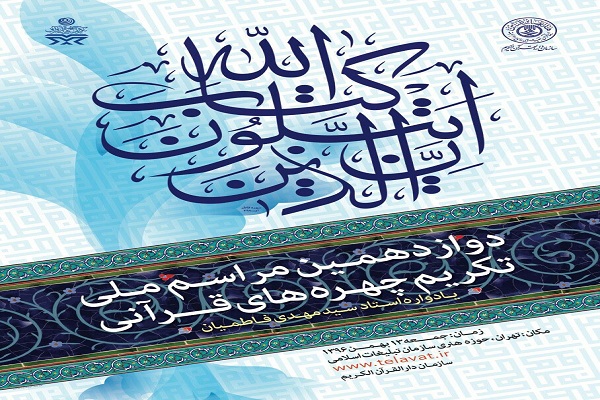 ان الذین یتلون کتاب الله
دوازدهمین مراسم ملی
تکریم چهره های قرآنی
یادواره استاد سید مهدی فاطمیان
زمان: جمعه ۱۳ بهمن ۱۳۹۶
مکان: تهران، حوزه هنری سازمان تبلیغات اسلامی
www.telavat.ir
سازمان دارالقرآن الکریم